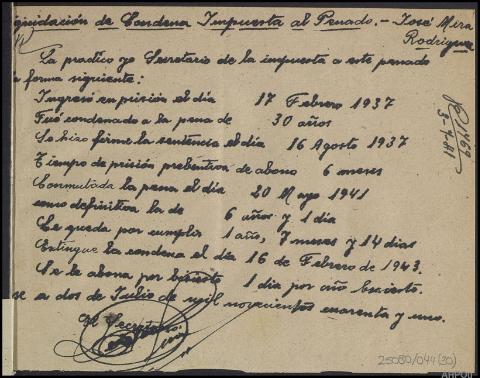 quidación de Condena Impuesta al Penado.- José Mira
Rodriguez
La practico yo Secretario de la impuesta a este penado
forma siguiente:
Ingresó en prisión el día 17 Febrero 1937
Fué condenado a la pena de 30 años
Se hizo firme la sentencia el día 16 Agosto 1937
Tiempo de prisión prebentiva de abono 6 meses
Conmutada la pena el día 20 Mayo 1941
como definitiva la de 6 años y 1 dia
Le queda por cumplir 1 año, 7 meses y 14 dias
Extingue la condena el día 16 de Febrero de 1943.
Se le abona por bisiesto 1 día por año bisiesto.
se a dos de Julio de mil novecientos cuarenta y uno.
El Secretario
25080/044(30)